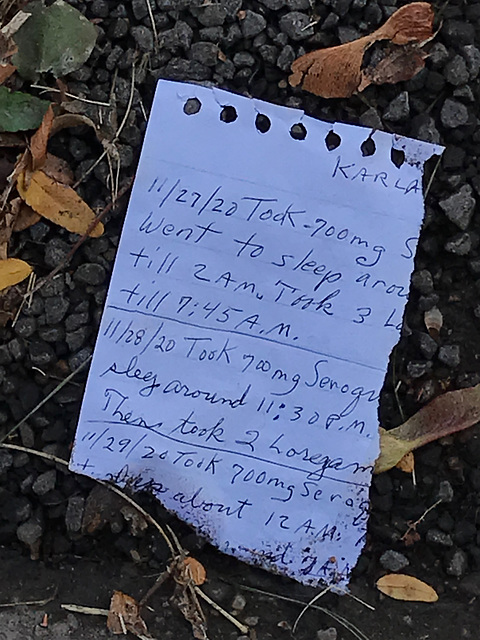 KARLA
11/27/20 Took -700mg S
Went to sleep arou
till 2 AM. Took 3 Lo
till 7:45 A.M.
11/28/20 Took 700mg Seroqu
sleep around 11:30 P.M.
Then took 2 Loregam
11/29/20 Took 700mg Seroq
sleep about 12 AM.